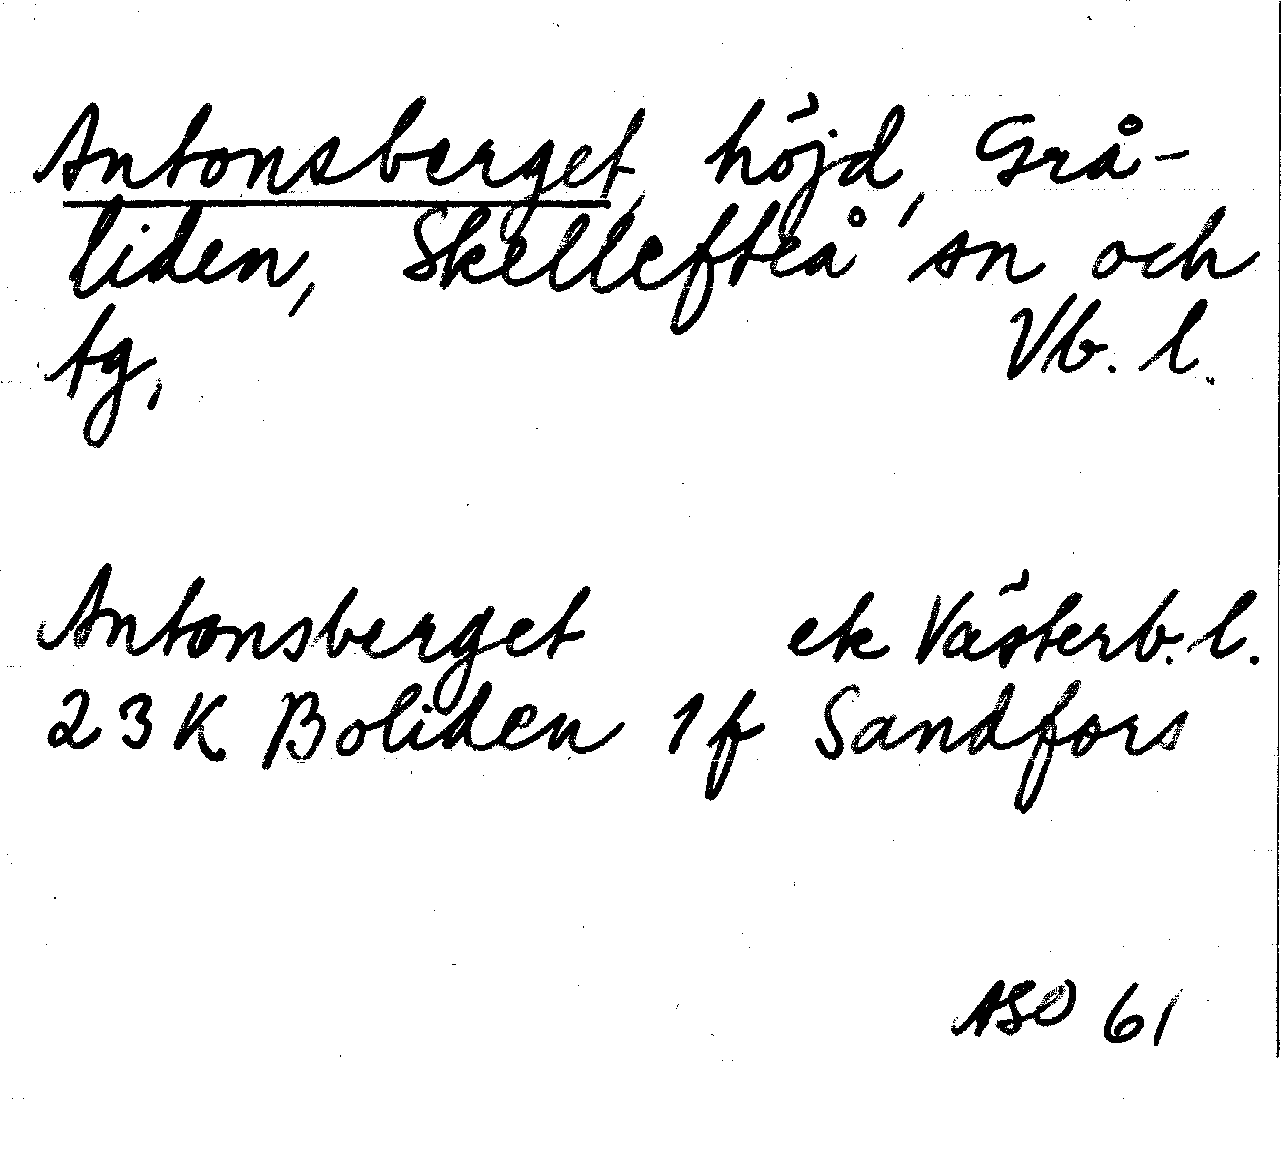 Antonsberget, höjd, Grå-
liden, Skellefteå sn och
tg, Vb. l.
Antonsberget ek Västerb. l.
23 K Boliden 1f Sandfors
ASO 61